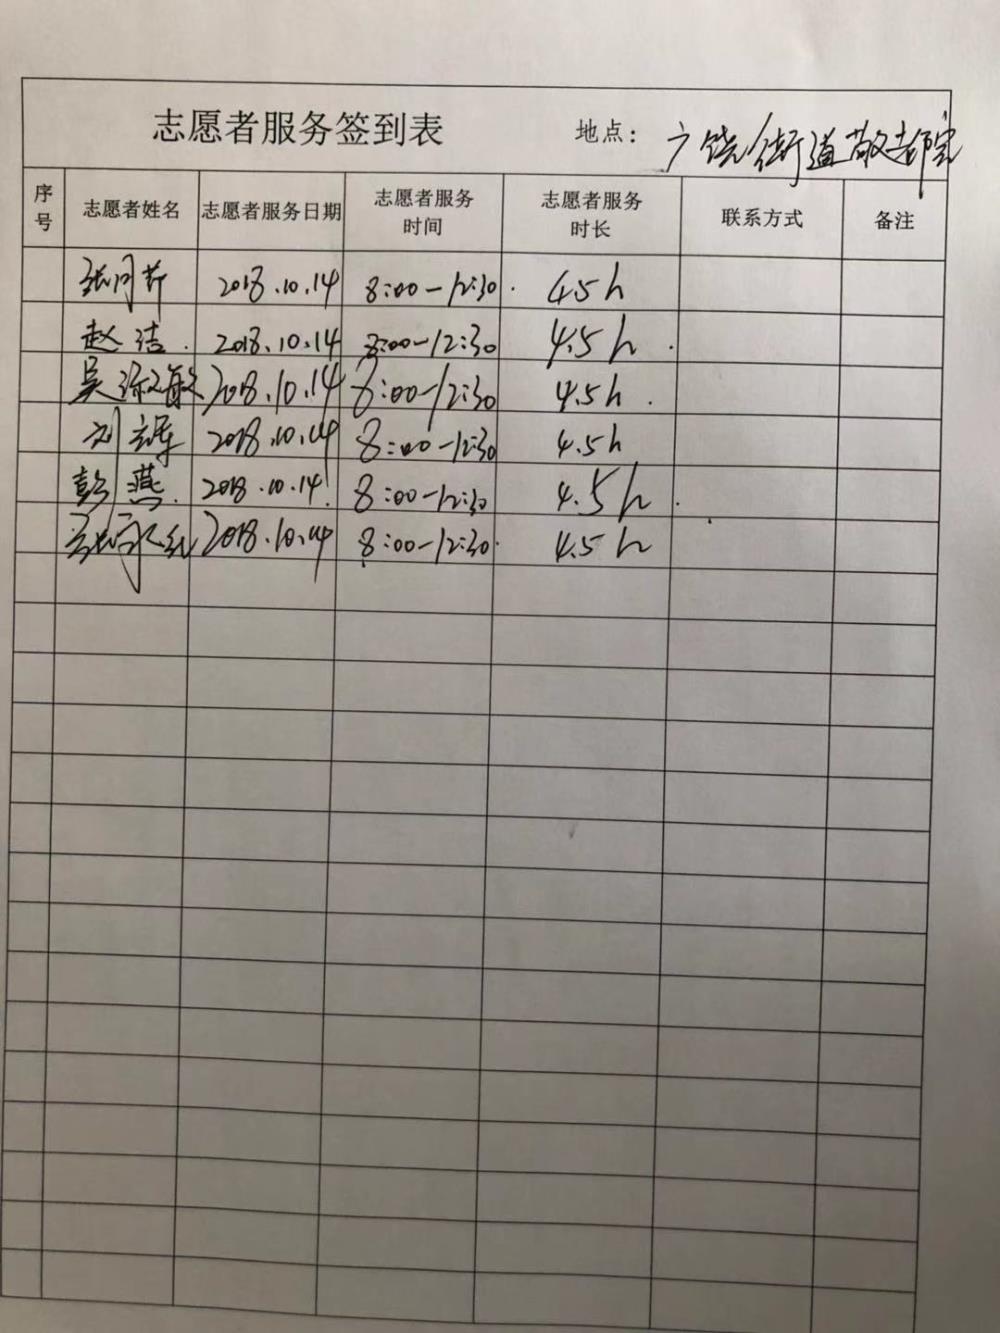 志愿者服务签到表 地点：广饶街道敬老院
序号 志愿者姓名 志愿者服务日期 志愿者服务时间 志愿者服务时长 联系方式 备注
张同芹 2018.10.14 8:00-12:30. 4.5h
赵洁. 2018.10.14 8:00-12:30 4.5h.
吴淑敏 2018.10.14 8:00-12:30 4.5h.
刘 2018.10.14 8:00-12:30 4.5h
彭燕. 2018.10.14 8:00-12:30 4.5h.
2018.10.14 8:00-12:30. 4.5h